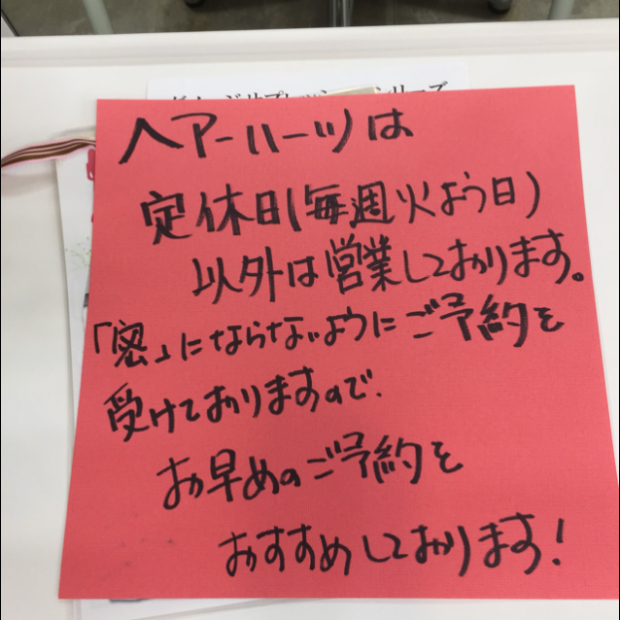 ヘアーハーツは
定休日(毎週火よう日)
以外は営業しております。
「密」にならないようにご予約を
受けておりますので.
お早めのご予約を
おすすめしております!